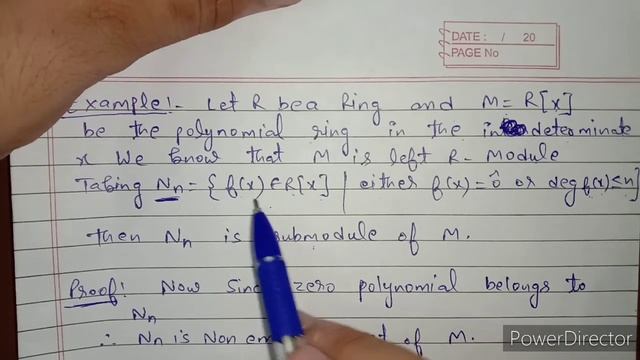 DATE: / 20
PAGE No
Example:- Let R be a Ring and M = R[x]
be the polynomial ring in the indeterminate
x We know that M is left R-module
Taking Nn = {f(x) ∈ R[x] | either f(x) = ô or deg f(x) ≤ n}
then Nn is submodule of M.
Proof: Now Since zero polynomial belongs to
Nn
∴ Nn is Non em of M.
PowerDirector